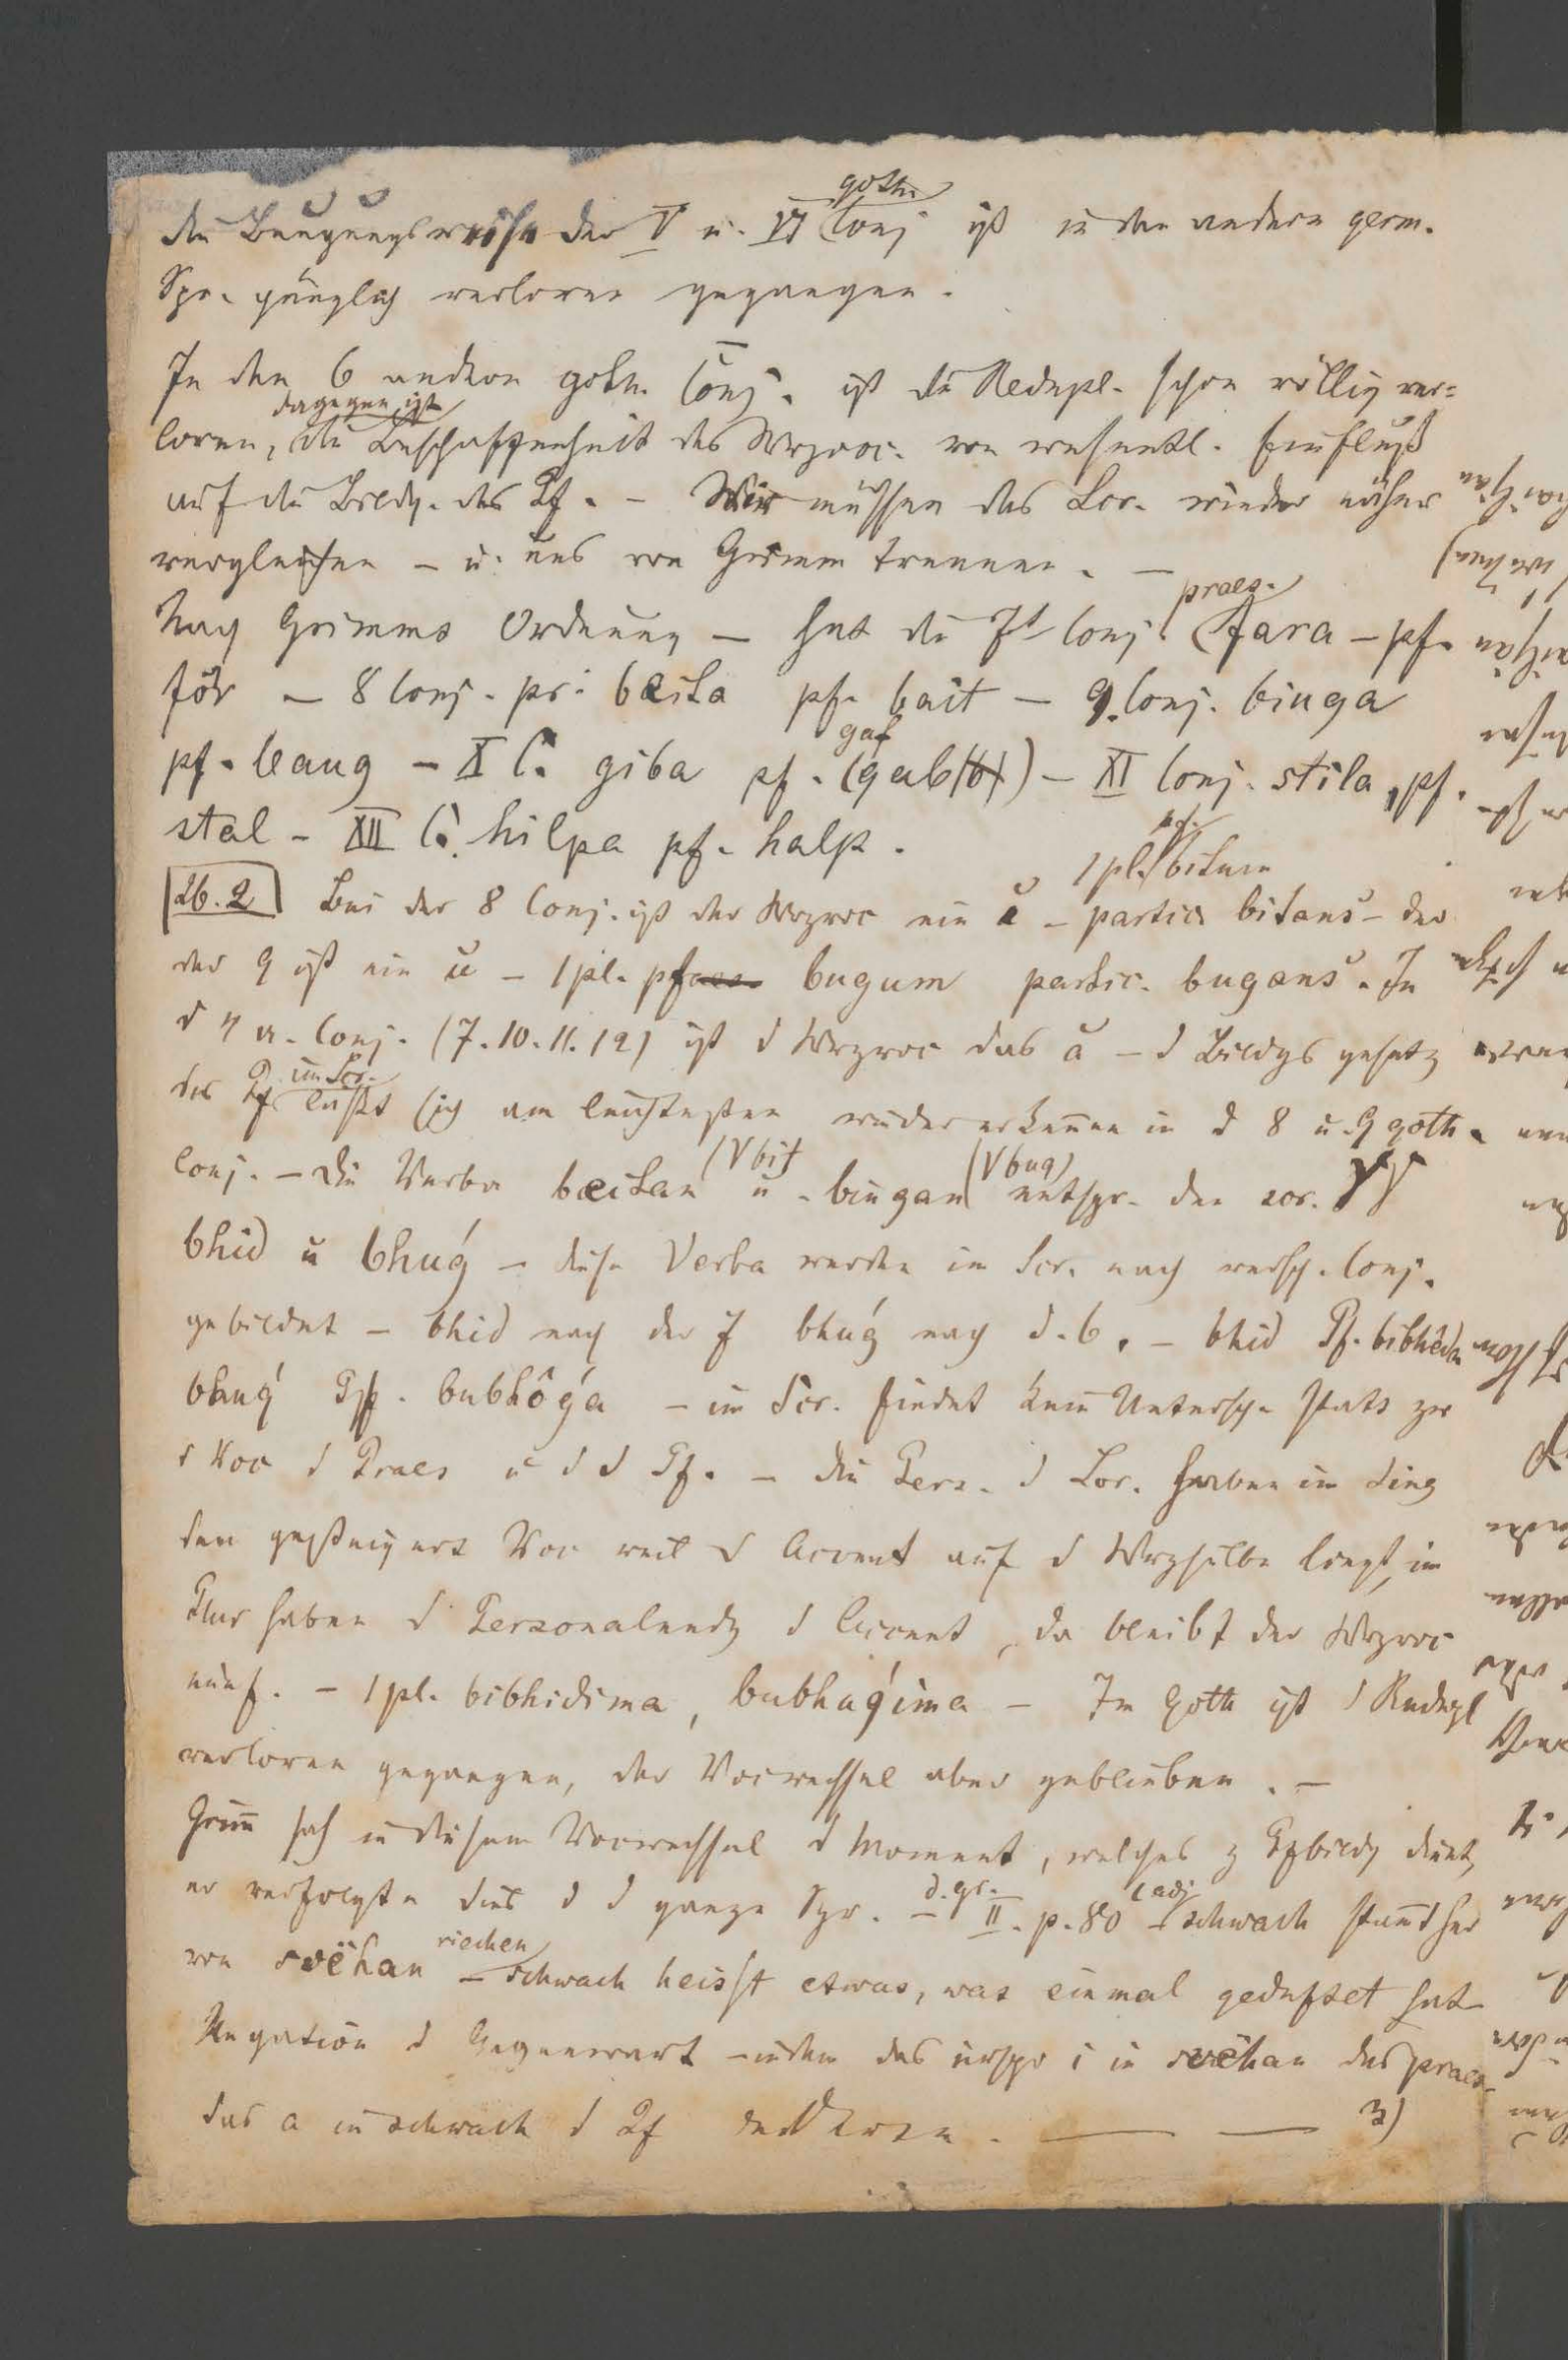 die Beugungsweise der V u. VI goth. Conj ist in den andern germ.
Spr. gänzlich verloren gegangen.
In den 6 andern goth. Conj. ist die Redupl. schon völlig ver=
loren, dagegen ist die Beschaffenheit des Wrzvoc. von wesentl. Einfluß
auf die Bildg. des Pf. – Wir müssen das Scr. wieder näher
vergleichen – u. uns von Grimm trennen. –
Nach Grimms Ordnung – hat die 7t Conj praes. fara – pf.
fôr – 8 Conj. pr. beita pf. bait – 9. Conj. biuga
pf. baug – X C. giba pf. gaf (gab) – XI Conj. stila, pf.
stal – XII C. hilpa pf. halp.
26.2 Bei der 8 Conj. ist der Wrzvoc ein ĭ – 1 pl. pf. bitum partic bitans – der
der 9 ist ein ŭ – 1 pl. pf bugum partic. bugans. In
d 4 a. Conj. (7. 10. 11. 12) ist d Wrzvoc das ă – d Bildgs gesetz
des Pf im Scr. läßt sich am leichtesten wiedererkennen in d 8 u. 9 goth.
Conj. – Die Verba beitan (√bit u. biugan (√bug) entspr. den scr. √√
bhid u bhuǵ – diese Verba werden im Scr. nach versch. Conj.
gebildet – bhid nach der 7 bhuǵ nach d. 6. – bhid Pf. bibhêda
bhuǵ Pf. bubhôǵa – im Scr. findet kein Untersch. statt zw
d Voc d Praes u d d Pf. – Die Pers. d Scr. haben im Sing
den gesteigert Voc weil d Accent auf d Wrzsilbe liegt, im
Plur haben d Personalendg d Accent, da bleibt der Wrzvoc
einf. – 1 pl. bibhidima, bubhuǵima – Im Goth ist d Redupl
verloren gegangen, der Vocwechsel aber geblieben. –
Grim̄ sah in diesem Vocwechsel d Moment, welches z Pfbildg dient,
er verfolgte dies d d ganze Spr. – d. gr. II. p. 80 – (adj schwach stam̄t her
von svëhan riechen – schwach heisst etwas, was einmal geduftet hat
Negation d Gegenwart – indem das urspr i in svëhan das praes.
das a in schwach d Pf. — — 3)